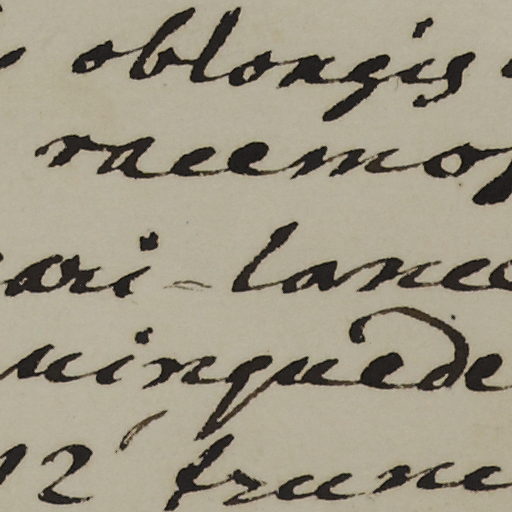 oblongis
racemos
ari-lance
uinquede
12' trunc